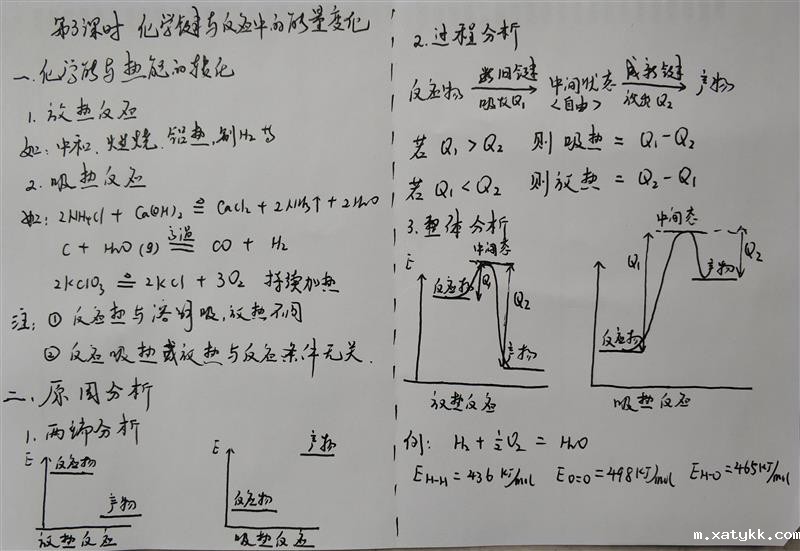 第3课时 化学键与反应中的能量变化
一、化学能与热能的转化
1. 放热反应
如: 中和、燃烧、铝热, 制H₂等
2. 吸热反应
如: 2NH₄Cl + Ca(OH)₂ ≜ CaCl₂ + 2NH₃↑ + 2H₂O
C + H₂O(g) 高温 CO + H₂
2KClO₃ ≜ 2KCl + 3O₂ 持续加热
注: ① 反应热与溶解吸、放热不同
② 反应吸热或放热与反应条件无关.
二、原因分析
1. 两端分析
E
反应物
产物
放热反应
E
产物
反应物
吸热反应
2. 过程分析
反应物 断旧键 吸收Q₁ 中间状态 <自由> 成新键 放出Q₂ 产物
若 Q₁ > Q₂ 则 吸热 = Q₁ - Q₂
若 Q₁ < Q₂ 则放热 = Q₂ - Q₁
3. 整体分析
E
中间态
反应物
Q₁
Q₂
产物
放热反应
中间态
Q₁
产物
Q₂
反应物
吸热反应
例: H₂ + ½O₂ = H₂O
E H-H = 436 KJ/mol E O=O = 498 KJ/mol E H-O = 465 KJ/mol
m.xatykk.com